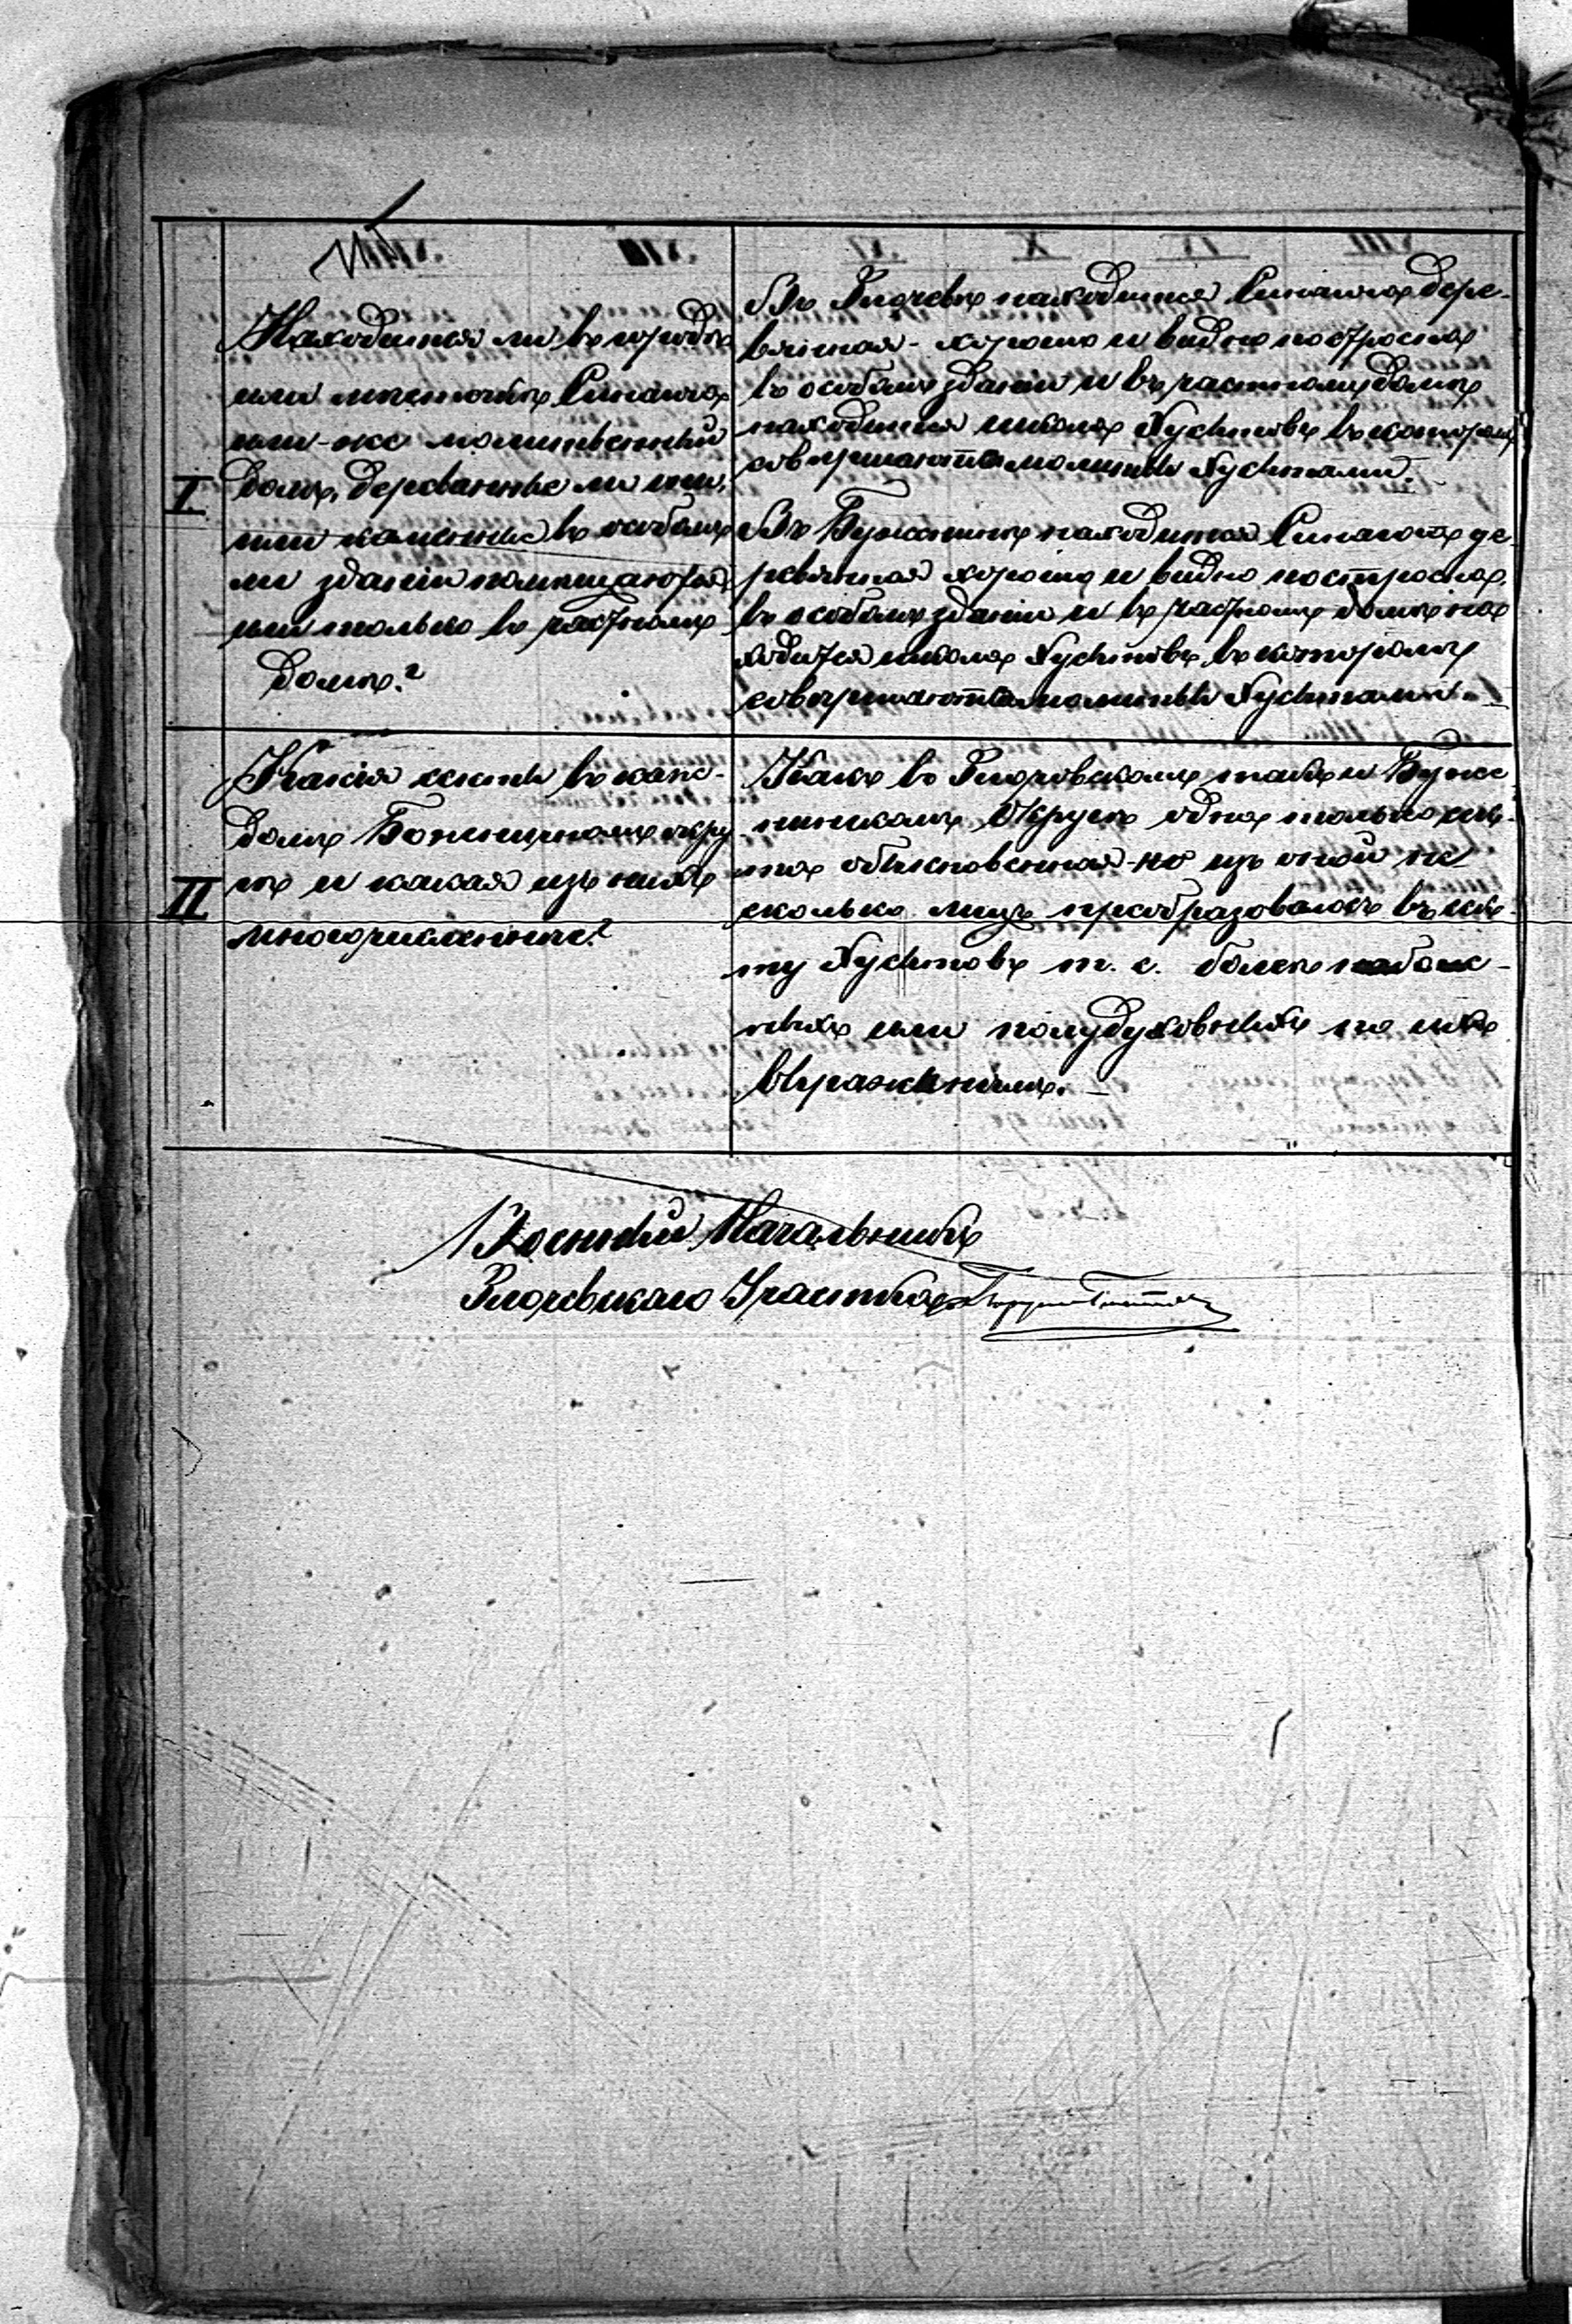 I
Находится ли въ городѣ
или мѣстечкѣ Синагога
или-же молитвенный
домъ, деревянные ли они,
или каменные въ особомъ
ли зданіи помѣщаются
или только въ частномъ
домѣ?
Въ Злочевѣ находится Синагога дере-
вянная - хорошо и видно построена
въ особомъ зданіи и въ частномъ домѣ
находится школа Хуситовъ въ которомъ
совершаются молитвы Хуситами.
Въ находится Синагога де-
ревянная хорошо и видно построена,
въ особомъ зданіи и въ частномъ домѣ на
ходится школа Хуситовъ, въ которомъ
совершаются молитвы Хуситами.
II
Какія секты въ каж-
домъ Божничномъ окру
гѣ и какая изъ нихъ
многочисленнѣе?
Какъ въ Злочевскомъ такъ и
Округѣ одна только сек-
та обыкновенная - но изъ оной нѣ
сколько лицъ преобразовалось въ сек-
ту Хуситовъ т. е. болѣе набож-
ныхъ или полудуховныхъ по ихъ
выраженіямъ. -
Военный Начальникъ
Злочевскаго Участка